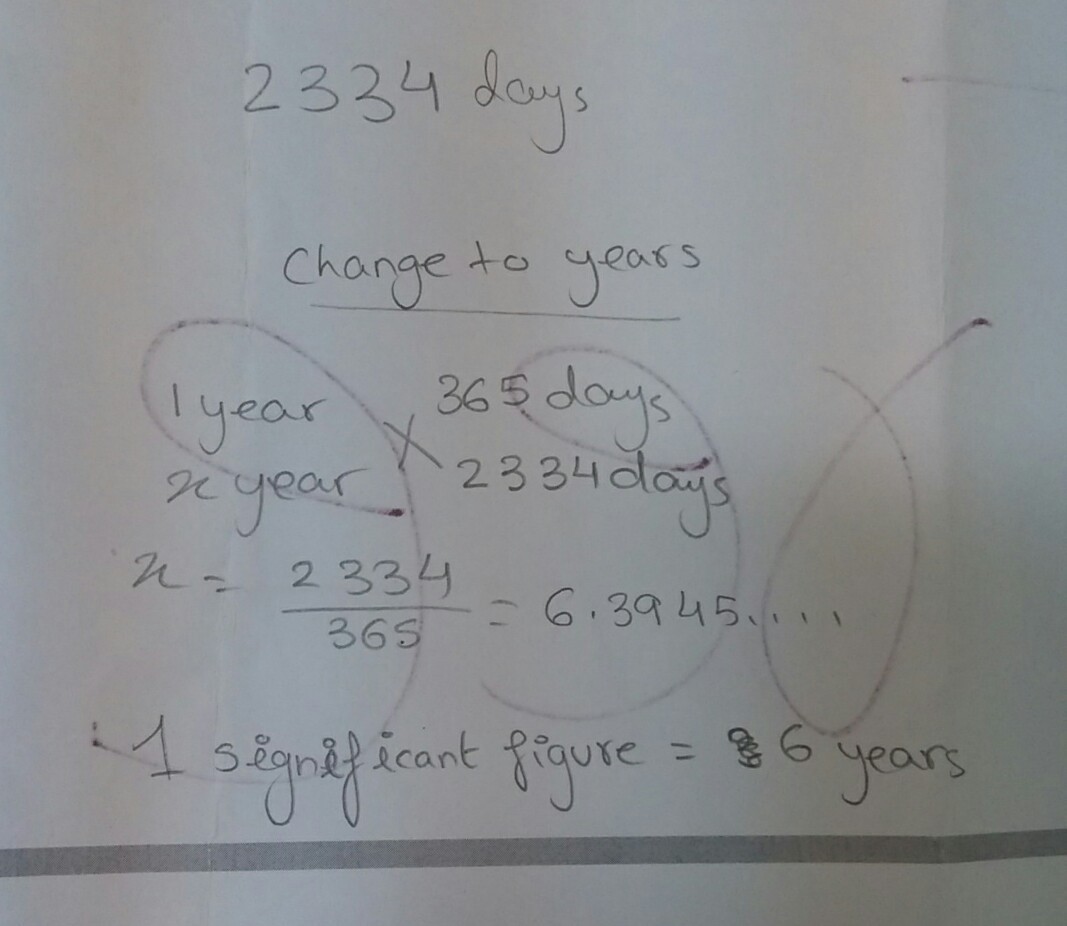 2334 days
Change to years
1 year × 365 days
x year 2334 days
x = 2334/365 = 6.3945.....
1 significant figure = 6 years